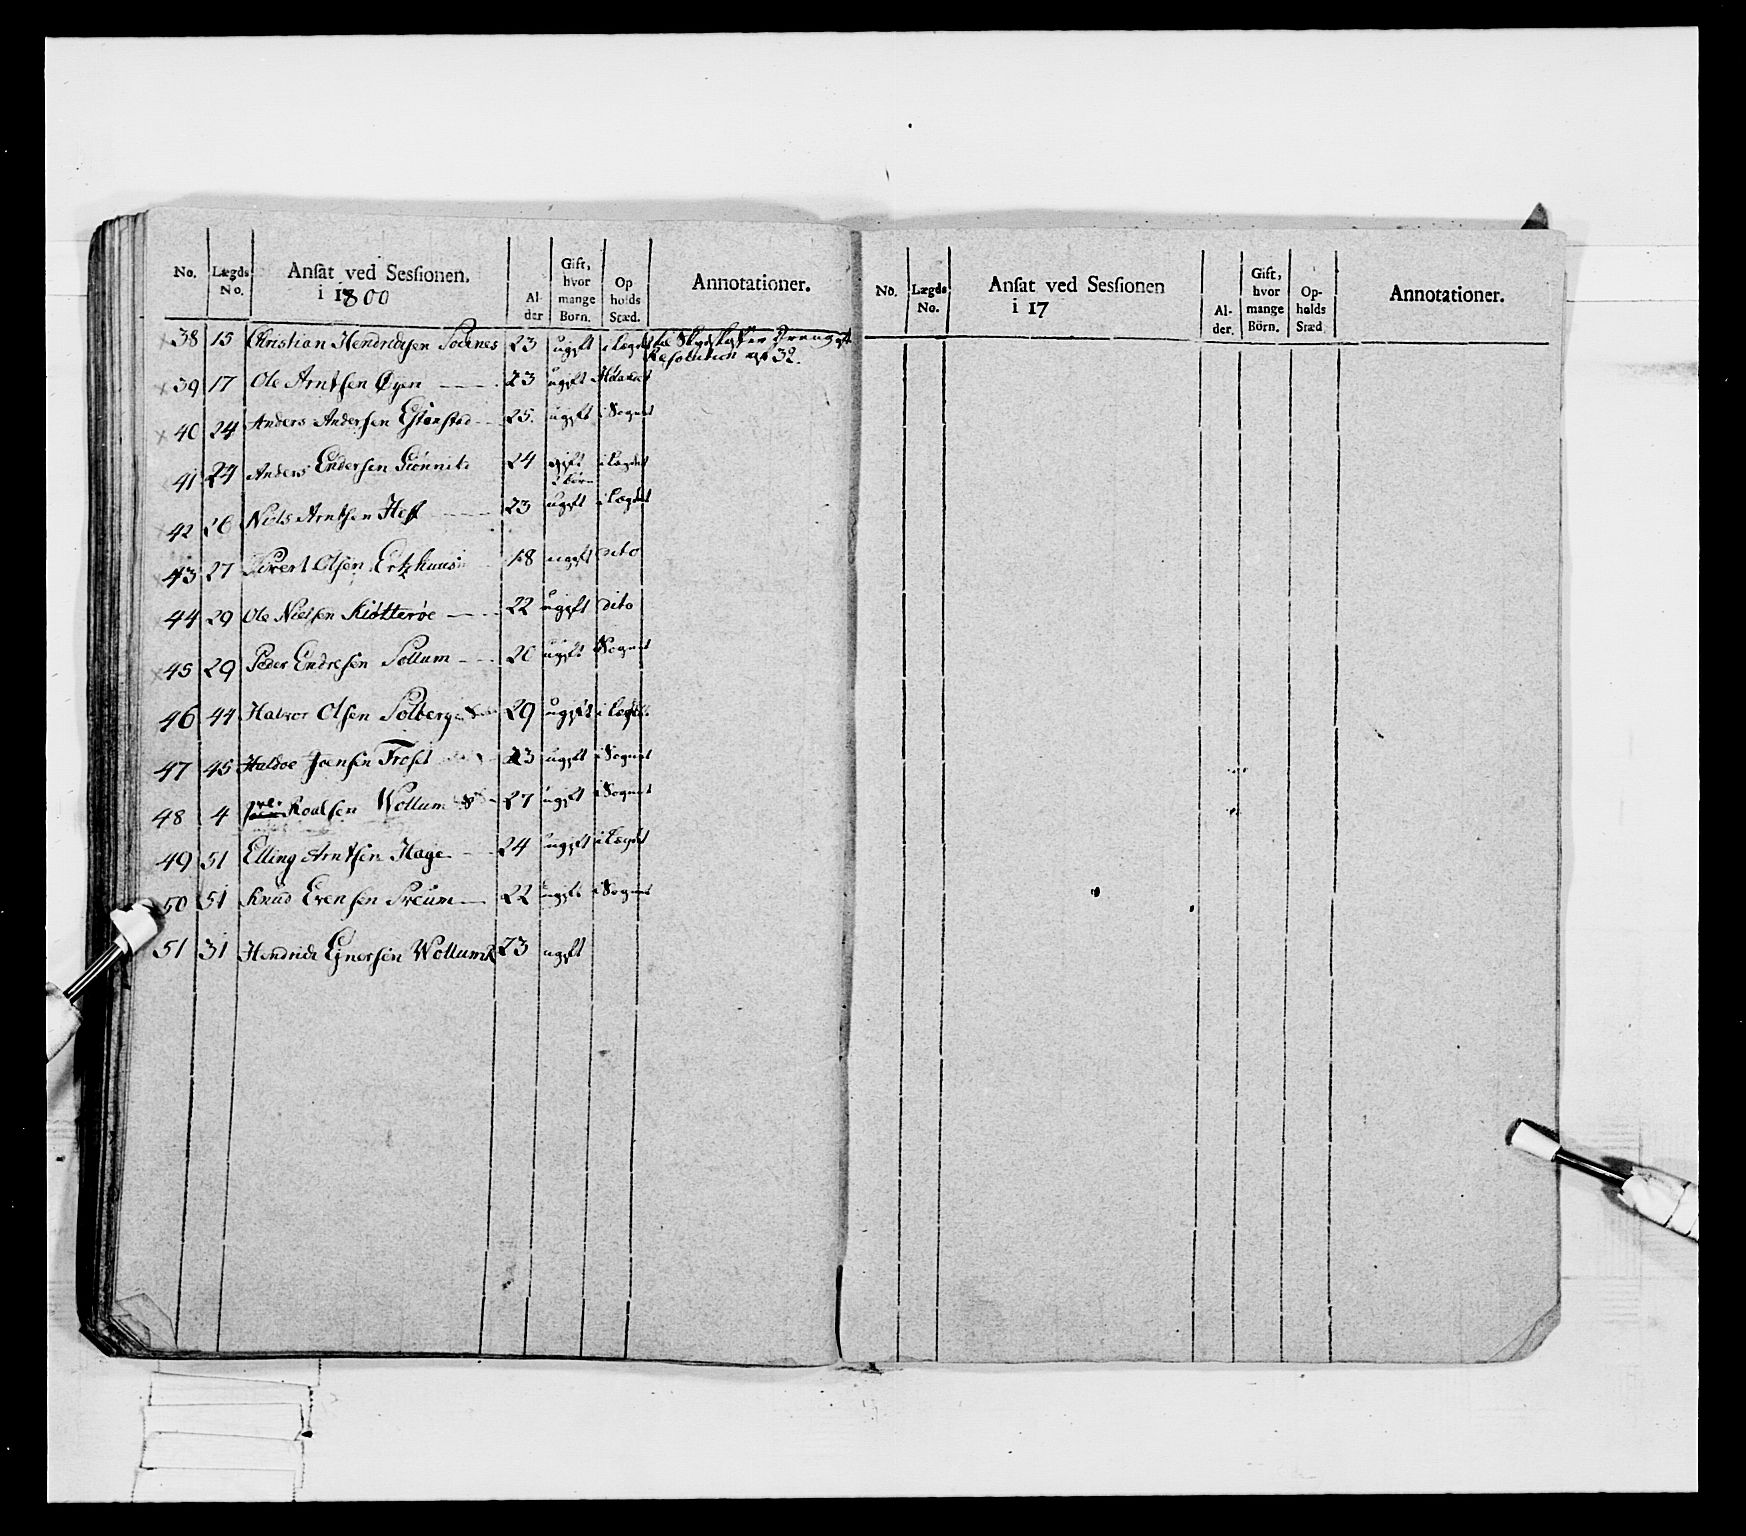 No. Lægds No. Ansat ved Sessionen. i 1800 Al- der Gift, hvor mange Born. Op holds Stæd. Annotationer.
38 15 Christian Hendrichsen 23 ugift i Lægdet
Resolution 32.
39 17 Ole Arntsen Øyen 23 ugift
40 24 Anders Andersen 25. ugift i Sognet
41 24 Anders Endersen 24 gift 2 børn i Lægdet
42 26 Niels Arntsen 23 ugift i Lægdet
43 27 Sivert Olsen 18 ugift dito
44 29 Ole Nielsen Kiøtterøe 22 ugift dito
45 29 Peder Endresen Sollum 20 ugift i Sognet
46 44 Halvor Olsen Solberg 29 ugift
47 45 Haldoe Joensen Troset 23 ugift i Sognet
48 4 Roalsen Wollum 27 ugift i Sognet
49 51 Elling Arntsen Hage 24 ugift i Lægdet
50 51 Knud Evensen 22 ugift i Sognet
51 31 Hendrich Ejnersen Wollum 23 ugift
No. Lægds No. Ansat ved Sessionen i 17 Al- der. Gift, hvor mange Börn. Op- holds Stæd. Annotationer.